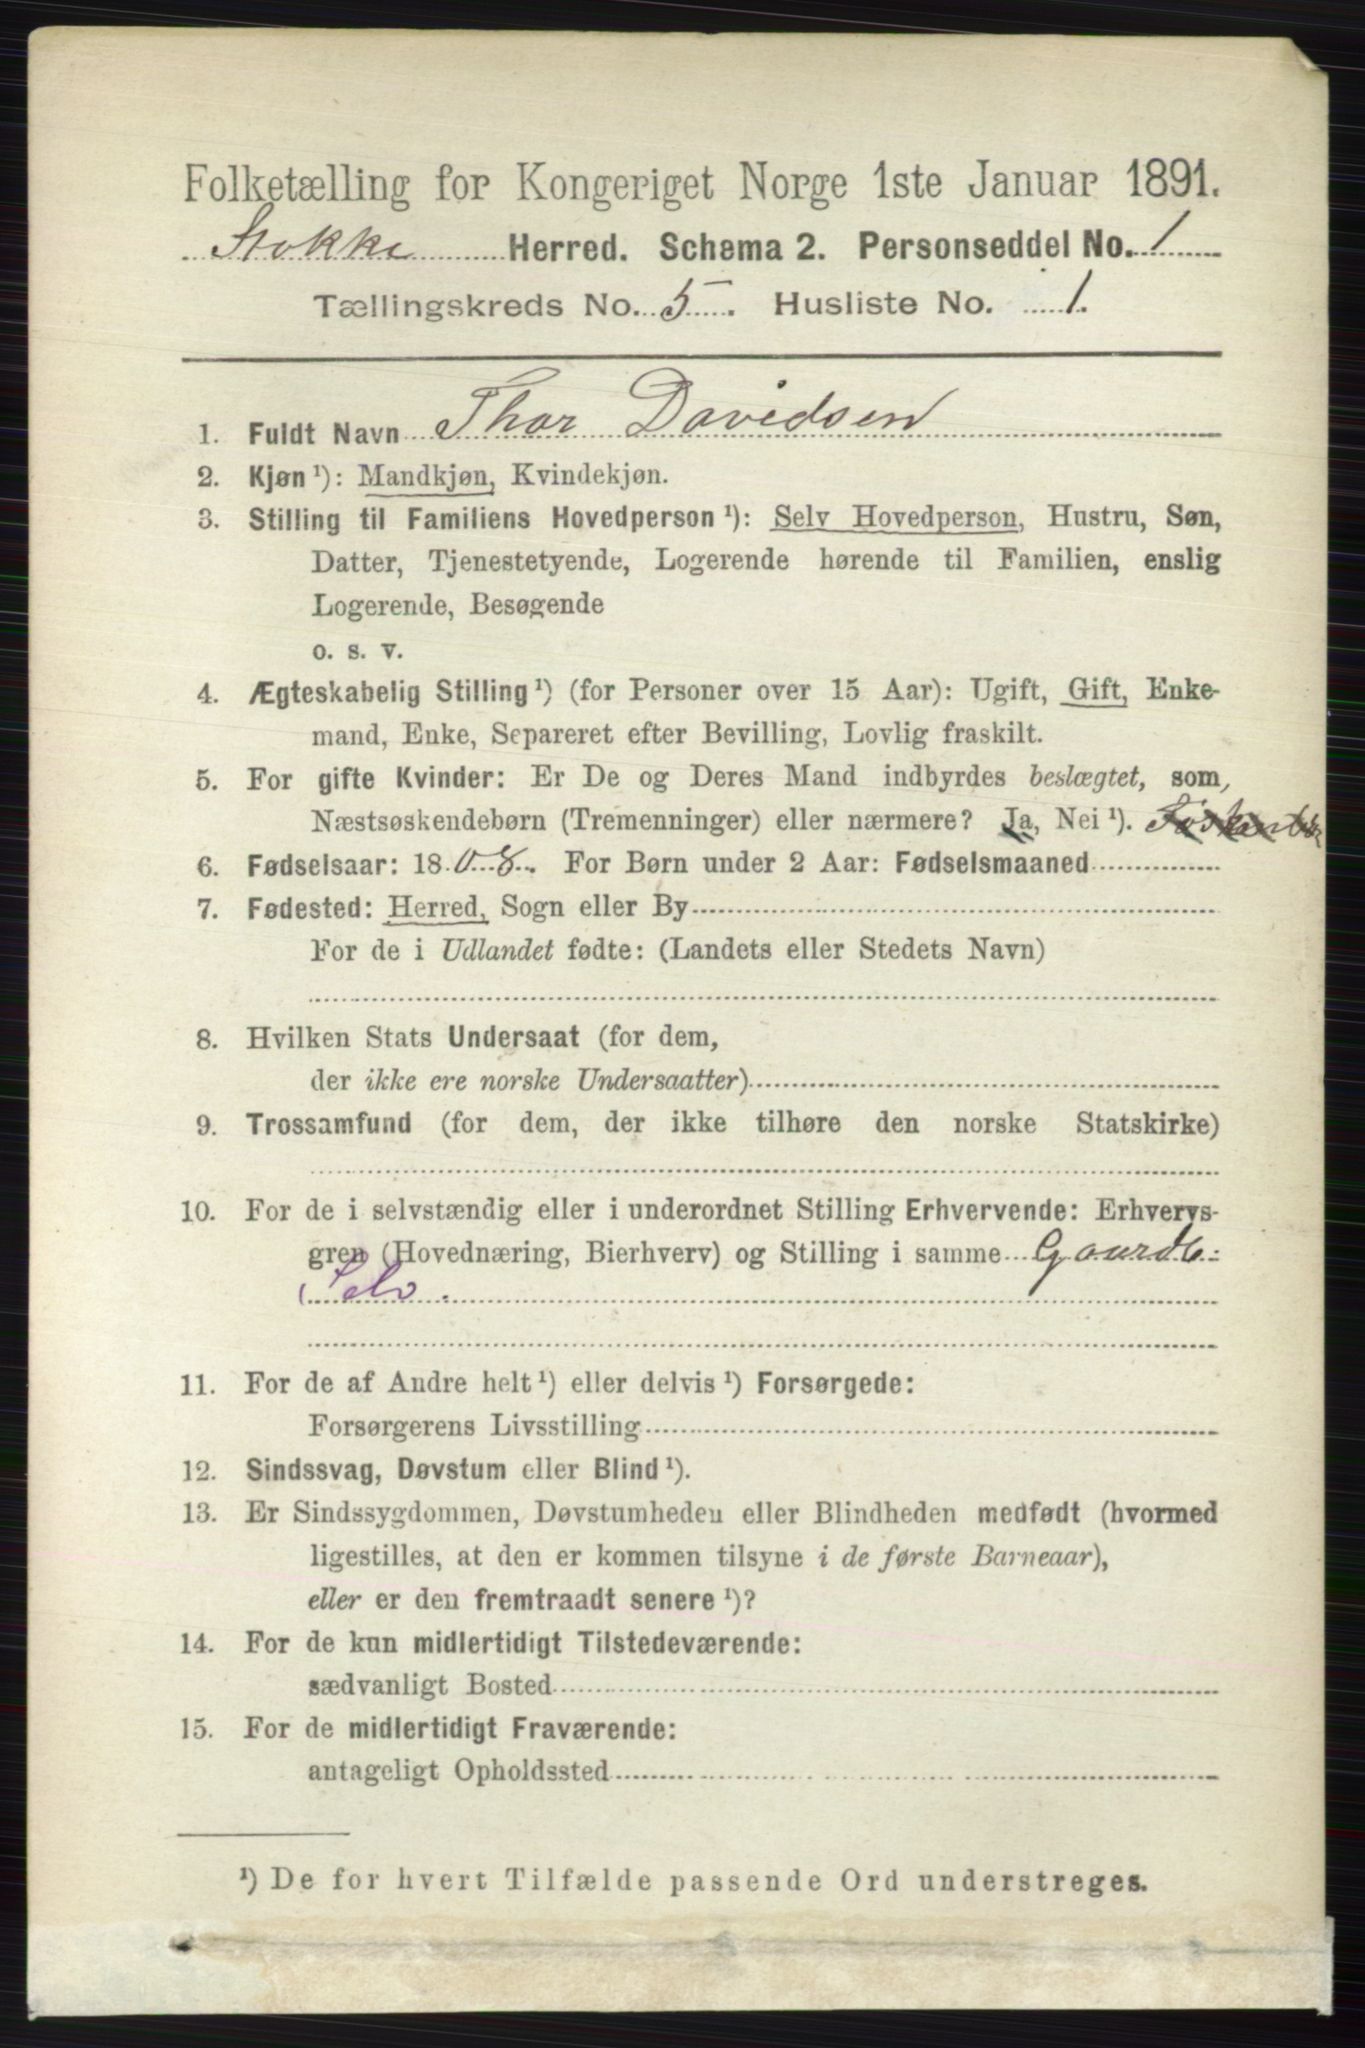 Folketælling for Kongeriget Norge 1ste Januar 1891.
Stokke Herred. Schema 2. Personseddel No. 1
Tællingskreds No. 5. Husliste No. 1.
1. Fuldt Navn Thor Davidsen
2. Kjøn ¹): Mandkjøn, Kvindekjøn.
3. Stilling til Familiens Hovedperson ¹): Selv Hovedperson, Hustru, Søn,
Datter, Tjenestetyende, Logerende hørende til Familien, enslig
Logerende, Besøgende
o. s. v.
4. Ægteskabelig Stilling ¹) (for Personer over 15 Aar): Ugift, Gift, Enke-
mand, Enke, Separeret efter Bevilling, Lovlig fraskilt.
5. For gifte Kvinder: Er De og Deres Mand indbyrdes beslægtet, som
Næstsøskendebørn (Tremenninger) eller nærmere? Ja, Nei ¹).
6. Fødselsaar: 1808. For Børn under 2 Aar: Fødselsmaaned
7. Fødested: Herred, Sogn eller By
For de i Udlandet fødte: (Landets eller Stedets Navn)
8. Hvilken Stats Undersaat (for dem,
der ikke ere norske Undersaatter)
9. Trossamfund (for dem, der ikke tilhøre den norske Statskirke)
10. For de i selvstændig eller i underordnet Stilling Erhvervende: Erhvervs-
gren (Hovednæring, Bierhverv) og Stilling i samme Gaardb:
Selv.
11. For de af Andre helt ¹) eller delvis ¹) Forsørgede:
Forsørgerens Livsstilling
12. Sindssvag, Døvstum eller Blind ¹).
13. Er Sindssygdommen, Døvstumheden eller Blindheden medfødt (hvormed
ligestilles, at den er kommen tilsyne i de første Barneaar),
eller er den fremtraadt senere ¹)?
14. For de kun midlertidigt Tilstedeværende:
sædvanligt Bosted
15. For de midlertidigt Fraværende:
antageligt Opholdssted
¹) De for hvert Tilfælde passende Ord understreges.